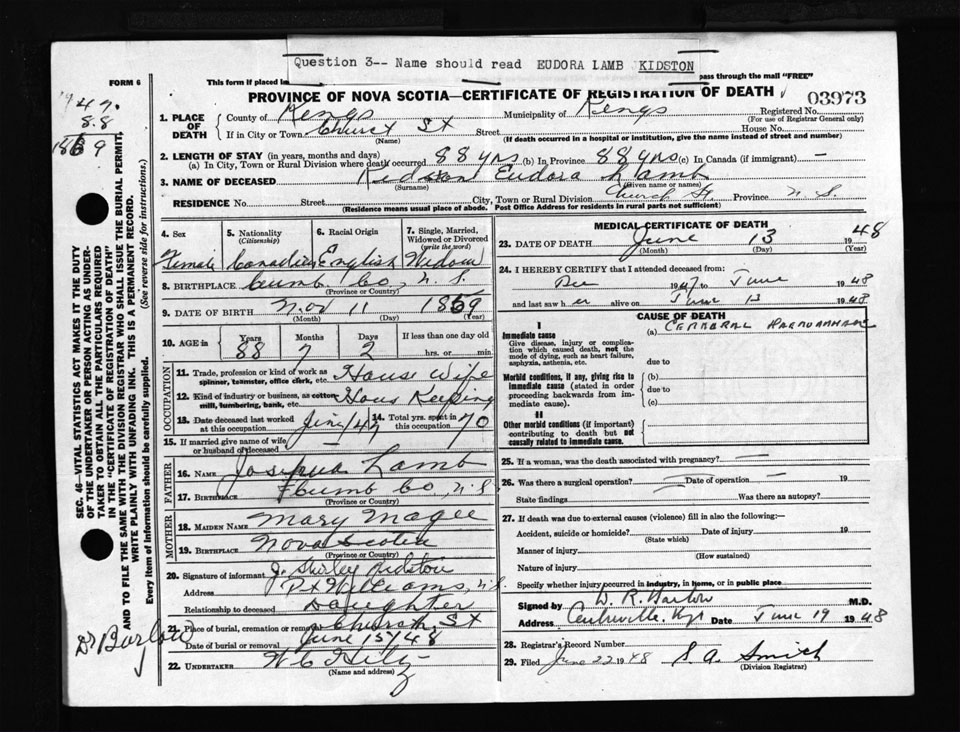 Question 3-- Name should read EUDORA LAMB KIDSTON
FORM 6
This form if placed in pass through the mail "FREE"
PROVINCE OF NOVA SCOTIA—CERTIFICATE OF REGISTRATION OF DEATH
03973
1947.
88
1859
1. PLACE OF DEATH
County of Kings Municipality of Kings Registered No.
(For use of Registrar General only)
If in City or Town Church St Street House No.
(Name) (If death occurred in a hospital or institution, give the name instead of street and number)
2. LENGTH OF STAY (in years, months and days)
(a) In City, Town or Rural Division where death occurred 88 yrs (b) In Province 88 yrs (c) In Canada (if immigrant) —
3. NAME OF DECEASED Kidston Eudora Lamb
(Surname) (Given name or names)
RESIDENCE No. Street City, Town or Rural Division Church St. Province N.S.
(Residence means usual place of abode. Post Office Address for residents in rural parts not sufficient)
4. Sex
Female
5. Nationality
(Citizenship)
Canadian
6. Racial Origin
English
7. Single, Married, Widowed or Divorced
(write the word)
Widow
8. BIRTHPLACE Cumb Co, N.S.
(Province or Country)
9. DATE OF BIRTH Nov 11 1859
(Month) (Day) (Year)
10. AGE in Years Months Days If less than one day old
88 7 2 hrs. or min.
OCCUPATION
11. Trade, profession or kind of work as spinner, teamster, office clerk, etc. House Wife
12. Kind of industry or business, as cotton mill, lumbering, bank, etc. Hous Keeping
13. Date deceased last worked at this occupation
14. Total yrs. spent in this occupation 70
15. If married give name of wife or husband of deceased —
FATHER
16. Name Lamb
17. Birthplace Cumb Co, N.S.
(Province or Country)
MOTHER
18. MAIDEN NAME Mary Magee
19. BIRTHPLACE Nova Scotia
(Province or Country)
20. Signature of informant J. Shirley Kidston
Address Pt Williams, N.S.
Relationship to deceased Daughter
21. Place of burial, cremation or removal Church St
Date of burial or removal June 15/48
22. UNDERTAKER
(Name and address)
MEDICAL CERTIFICATE OF DEATH
23. DATE OF DEATH June 13 1948
(Month) (Day) (Year)
24. I HEREBY CERTIFY that I attended deceased from:
Dec 1947 to June 1948
and last saw her alive on June 13 1948
CAUSE OF DEATH
I
Immediate cause
Give disease, injury or complication which caused death, not the mode of dying, such as heart failure, asphyxia, asthenia, etc.
(a) CEREBRAL HAEMORRHAGE
due to
Morbid conditions, if any, giving rise to immediate cause (stated in order proceeding backwards from immediate cause).
(b)
due to
(c)
II
Other morbid conditions (if important) contributing to death but not causally related to immediate cause.
25. If a woman, was the death associated with pregnancy? —
26. Was there a surgical operation? — Date of operation — 19
State findings Was there an autopsy?
27. If death was due to external causes (violence) fill in also the following:—
Accident, suicide or homicide? Date of injury 19
(State which)
Manner of injury
(How sustained)
Nature of injury
Specify whether injury occurred in industry, in home, or in public place
Signed by M.D.
Address Centreville, Date June 19 1948
28. Registrar's Record Number
29. Filed June 22 1948 S. A. Smith
(Division Registrar)
SEC. 46—VITAL STATISTICS ACT MAKES IT THE DUTY
OF THE UNDERTAKER OR PERSON ACTING AS UNDER-
TAKER TO OBTAIN ALL THE PARTICULARS REQUIRED
IN THE "CERTIFICATE OF REGISTRATION OF DEATH"
AND TO FILE THE SAME WITH THE DIVISION REGISTRAR WHO SHALL ISSUE THE BURIAL PERMIT.
WRITE PLAINLY WITH UNFADING INK. THIS IS A PERMANENT RECORD.
Every item of information should be carefully supplied. (See reverse side for instructions.)